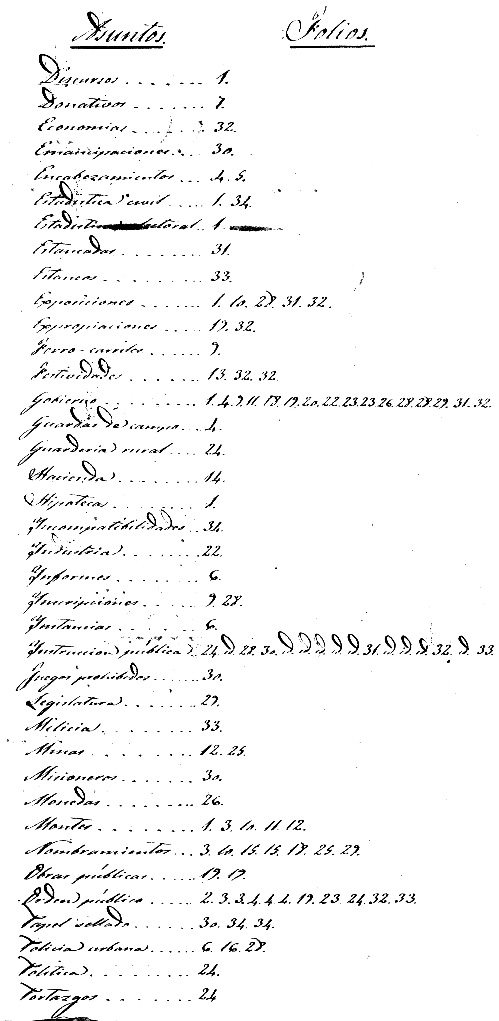 Asuntos. Folios.
Discursos ........ 1.
Donativos ........ 7.
Economias ........ 32.
Emancipaciones ... 30.
Encabezamientos ... 4. 5.
Estadistica civil .... 1. 34.
Estadistica electoral 1.
Estancadas ........ 31.
Estancos ........ 33.
Exposiciones ....... 1. 10. 28. 31. 32.
Expropiaciones .... 19. 32.
Ferro-carriles ..... 9.
Festividades ....... 13. 32. 32.
Gobierno ........ 1. 4. 9. 11. 18. 19. 20. 22. 23. 23. 26. 28. 28. 29. 31. 32.
Guardas de campo ... 4.
Guarderia rural ... 24.
Hacienda ........ 14.
Hipoteca ........ 1.
Incompatibilidades .. 34.
Industria ........ 22.
Informes ........ 6.
Inscripciones ...... 9. 28.
Instancias ....... 6.
Instruccion pública . 24. d. d. 28. 30. d. d. d. d. d. 31. d. d. d. 32. d. 33.
Juegos prohibidos .... 30.
Legislatura ....... 29.
Milicia ......... 33.
Minas ......... 12. 25.
Misioneros ....... 30.
Monedas ........ 26.
Montes ........ 1. 3. 10. 11. 12.
Nombramientos ... 3. 10. 15. 15. 18. 25. 29.
Obras públicas .... 19. 19.
Orden público ..... 2. 3. 3. 4. 4. 4. 19. 23. 24. 32. 33.
Papel sellado ..... 30. 34. 34.
Policia urbana .... 6. 16. 28.
Politica ......... 24.
Portazgos ....... 24